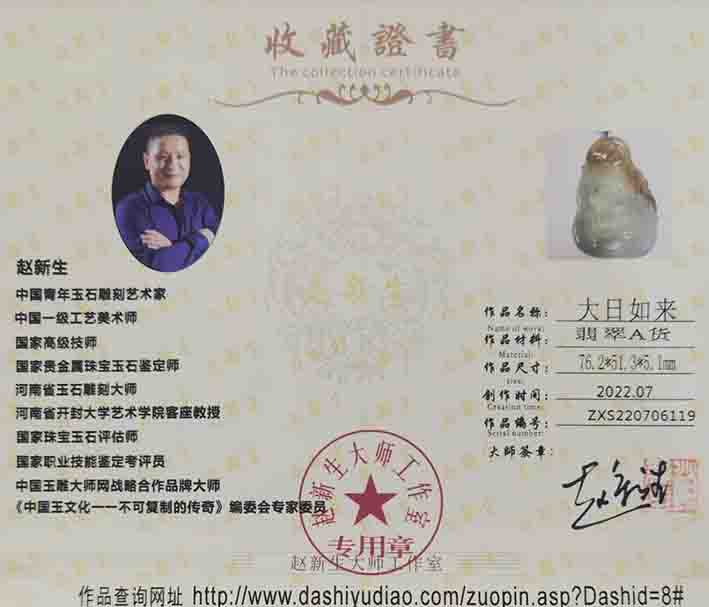 收藏證書
The collection certificate
赵新生
中国青年玉石雕刻艺术家
中国一级工艺美术师
国家高级技师
国家贵金属珠宝玉石鉴定师
河南省玉石雕刻大师
河南省开封大学艺术学院客座教授
国家珠宝玉石评估师
国家职业技能鉴定考评员
中国玉雕大师网战略合作品牌大师
《中国王文化一一不可复制的传奇》编委会专家委员
作品名称: 大日如来
Name of work:
作品材料: 翡翠A货
Material:
作品尺寸: 76.2*51.3*5.1mm
size:
创作时间: 2022.07
Creation time:
作品编号: ZXS220706119
Serial number:
大师签章:
赵新生
赵新生大师工作室
专用章
赵新生大师工作室
作品查询网址 http://www.dashiyudiao.com/zuopin.asp?Dashid=8#